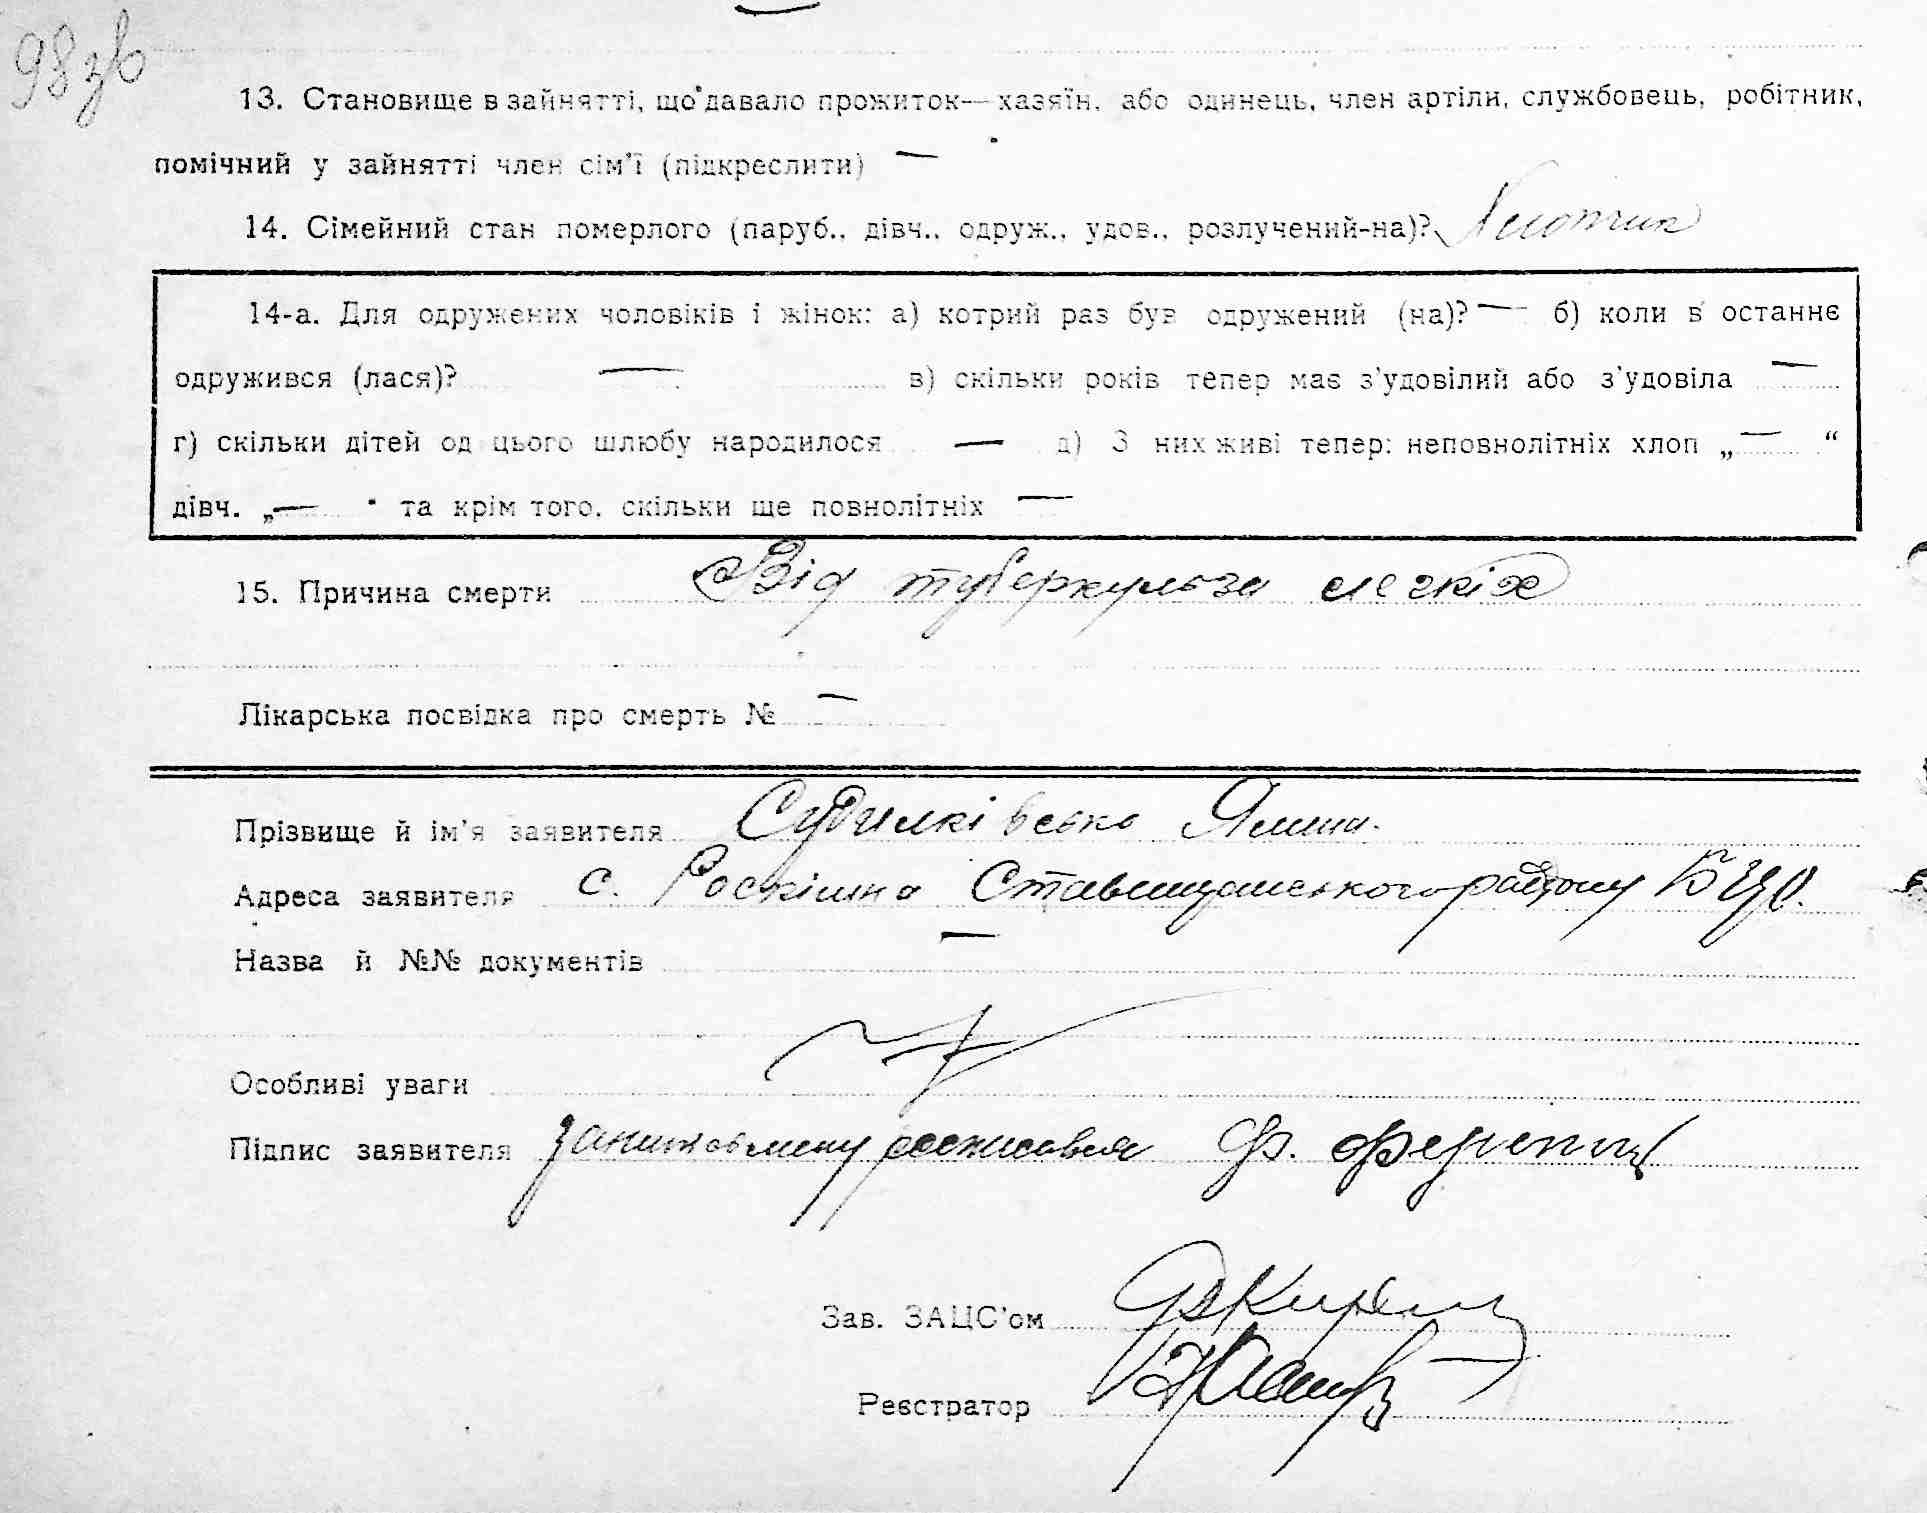 98зв
13. Становище в зайнятті, що давало прожиток—хазяїн, або одинець, член артіли, службовець, робітник,
помічний у зайнятті член сім'ї (підкреслити) —
14. Сімейний стан померлого (паруб., дівч., одруж., удов., розлучений-на)? Хлопчик
14-а. Для одружених чоловіків і жінок: а) котрий раз був одружений (на)? — б) коли в останнє
одружився (лася)? — в) скільки років тепер має з'удовілий або з'удовіла —
г) скільки дітей од цього шлюбу народилося — д) З них живі тепер: неповнолітніх хлоп „—“
дівч. „—" та крім того, скільки ще повнолітніх —
15. Причина смерти Від туберкульоза легкіх
Лікарська посвідка про смерть № —
Прізвище й ім'я заявителя Судилківсько
Адреса заявителя с. Роскішна Ставищанського району БЦО.
Назва й №№ документів —
Особливі уваги
Підпис заявителя росписався Ф.
Зав. ЗАЦС'ом
Реєстратор